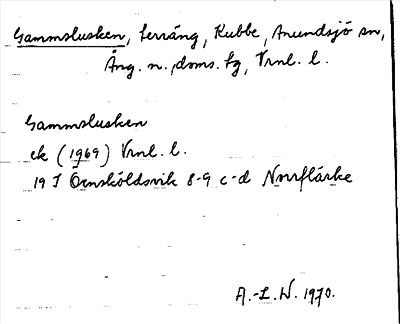 Gammslusken, terräng, Kubbe, Anundsjö sn,
Ång. n. doms. fg, Vrnl. l.
Gammslusken
ek (1969) Vrnl. l.
19 I Örnsköldsvik 8-9 c-d Norrflärke
A.-L. W. 1970.